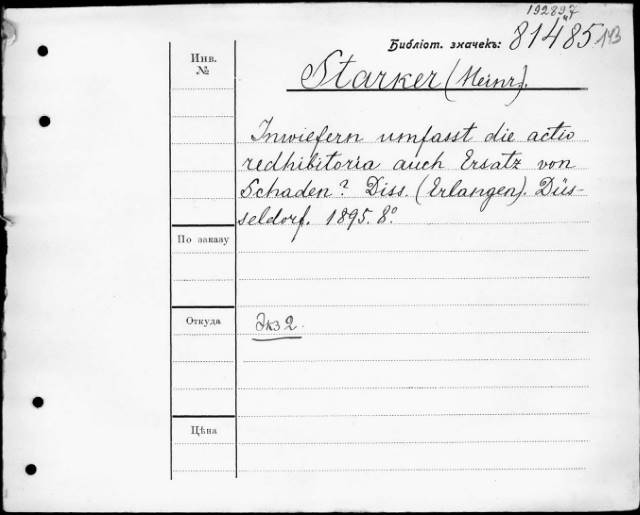 192897
Библіот. значекъ: 81485
Инв.
№
Starker (Heinr.).
Inwiefern umfasst die actio
redhibitoria auch Ersatz von
Schaden? Diss. (Erlangen). Düs-
seldorf. 1895. 8°.
По заказу
Откуда
Экз 2.
Цѣна